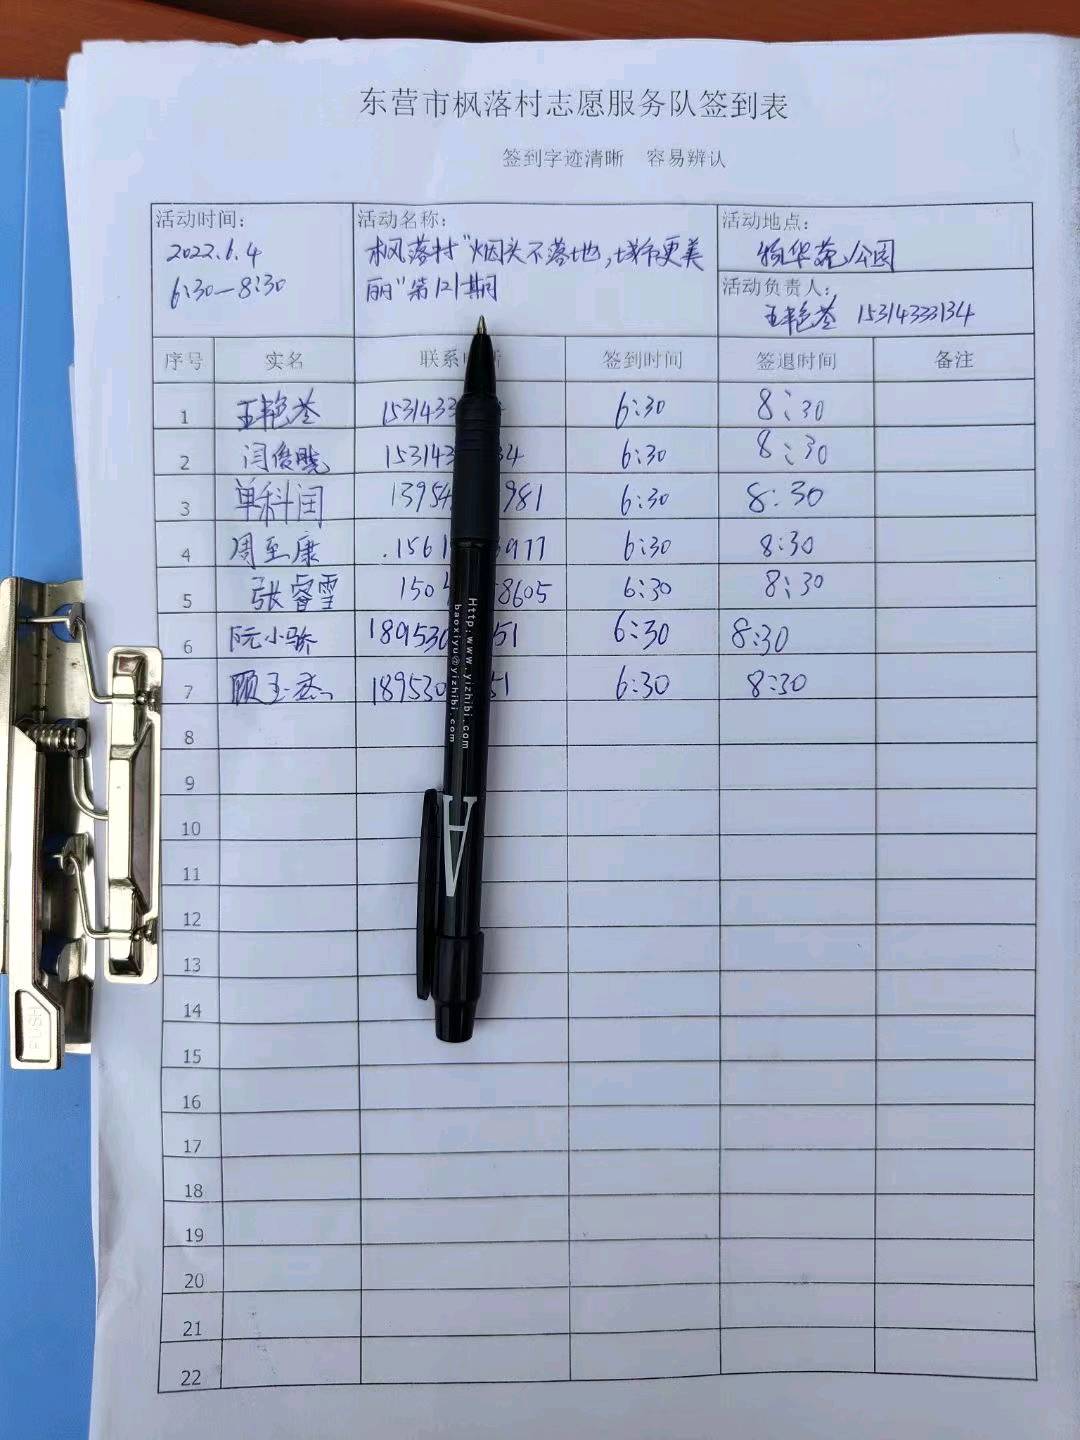 东营市枫落村志愿服务队签到表
签到字迹清晰 容易辨认
活动时间: 活动名称: 活动地点:
2022.6.4 枫落村"烟头不落地,城市更美 物华苑公园
6:30—8:30 丽"第121期 活动负责人:
王艳苓 15314333134
序号 实名 联系 签到时间 签退时间 备注
1 王艳苓 1531433 4 6:30 8:30
2 闫俊晓 153143 34 6:30 8:30
3 单科闰 1395 981 6:30 8:30
4 周至康 .1561 977 6:30 8:30
5 张睿雪 150 8605 6:30 8:30
6 阮小骄 189530 51 6:30 8:30
7 顾玉杰 189530 51 6:30 8:30
8
9
10
11
12
13
14
15
16
17
18
19
20
21
22
Http:www.yizhibi.com
baoxiyu@yizhibi.com
A
PUSH